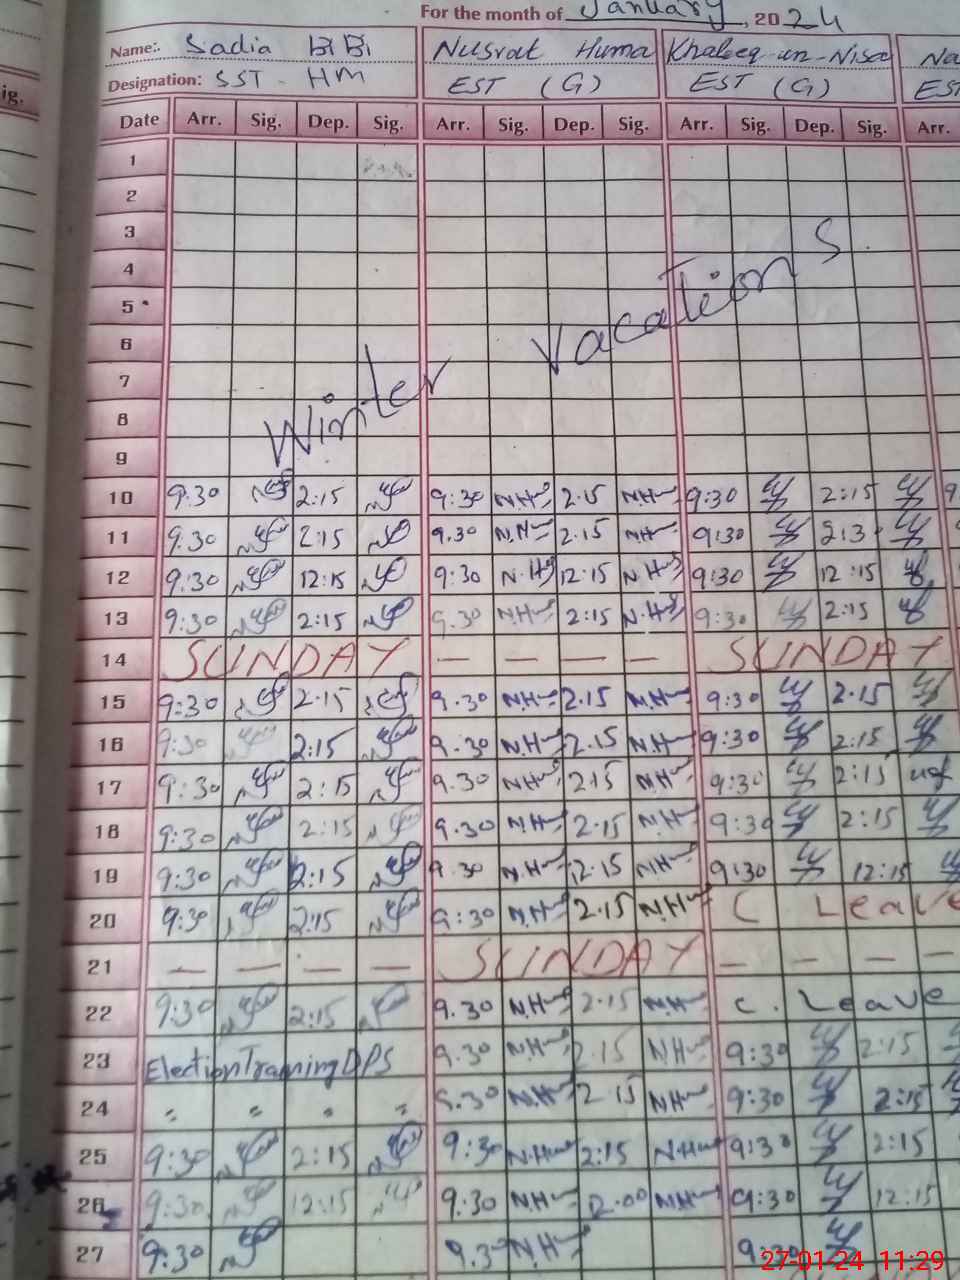 For the month of January, 2024
ig.
Name: Sadia BiBi Nusrat Huma Khaleeq-un-Nisa Na
Designation: SST - HM EST (G) EST (G) EST
Date Arr. Sig. Dep. Sig. Arr. Sig. Dep. Sig. Arr. Sig. Dep. Sig. Arr.
1
2
3
4
5
6
7
8
9
Winter Vacations
10 9:30 2:15 9:30 NH 2.15 NH 9:30 2:15 9
11 9:30 2:15 9.30 N.H 2.15 NH 9:30 2:3
12 9:30 12:15 9:30 N.H 12:15 N.H 9:30 12:15
13 9:30 2:15 9.30 NH 2:15 N.H 9:30 2:15
14 SUNDAY — — — — SUNDAY
15 9:30 2.15 9.30 N.H 2.15 N.H 9:30 2.15
16 9:30 2:15 9.30 N.H 2.15 N.H 9:30 2:15
17 9:30 2:15 9.30 NH 2.15 NH 9:30 2:15
18 9:30 2:15 9.30 N.H 2.15 N.H 9:30 2:15
19 9:30 2:15 9.30 N.H 12.15 N.H 9:30 12:15
20 9:30 2:15 9:30 N.H 2.15 N.H C Leave
21 — — — — SUNDAY — — — —
22 9:30 2:15 9.30 N.H 2.15 NH C. Leave
23 Election Training DPS 9.30 NH 2.15 NH 9:30 2:15
24 " " " " 9.30 N.H 2.15 NH 9:30 2:15
25 9:30 2:15 9:30 N.H 2:15 N.H 9:30 2:15
26 9:30 12:15 9.30 NH 12.00 NH 9:30 12:15
27 9:30 9.3 N.H 9:30
27-01-24 11:29